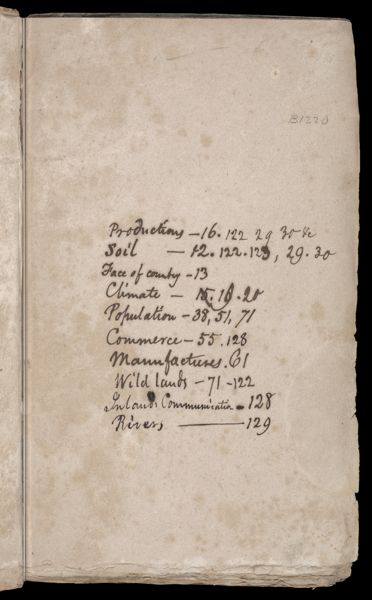 B1220
Productions - 16. 122 29 30 &c
Soil - 12. 122. 123, 29. 30
Face of country - 13
Climate - 15. 18. 20
Population - 38, 51, 71
Commerce - 55. 128
Manufactures. 61
Wild lands - 71 - 122
Inland Communication - 128
Rivers - 129